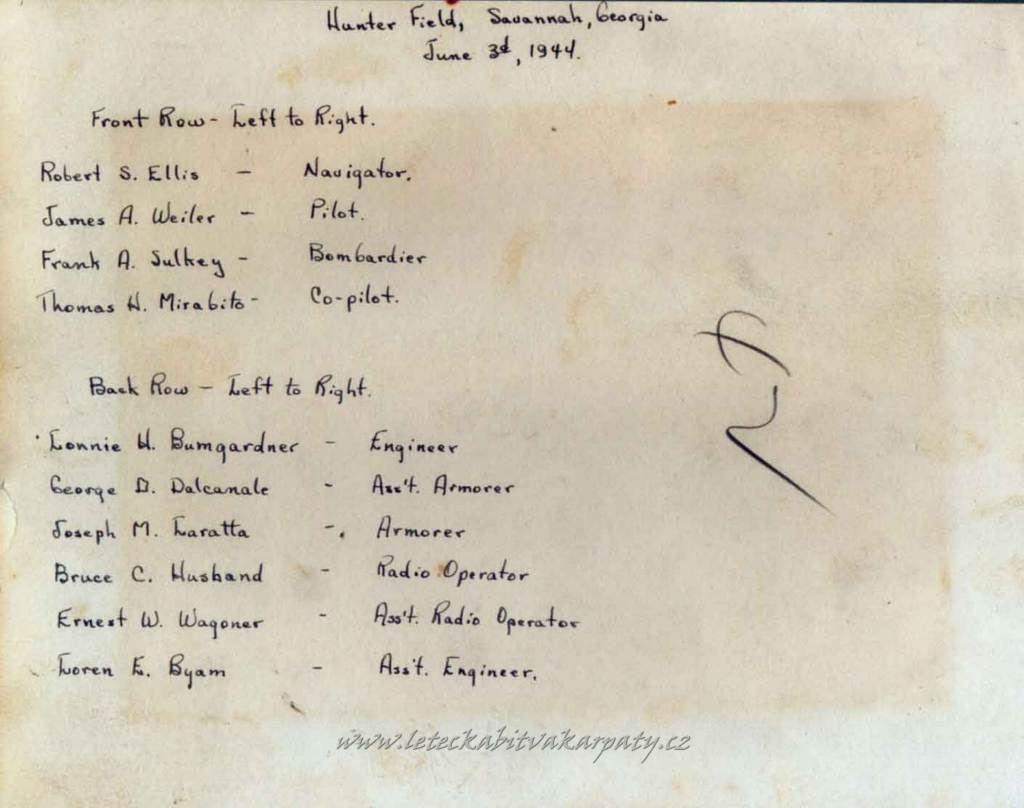 Hunter Field, Savannah, Georgia
June 3d, 1944.
Front Row - Left to Right.
Robert S. Ellis - Navigator.
James A. Weiler - Pilot.
Frank A. Sulkey - Bombardier
Thomas H. Mirabito - Co-pilot.
Back Row - Left to Right.
Lonnie H. Bumgardner - Engineer
George D. Dalcanale - Ass't. Armorer
Joseph M. Laratta - Armorer
Bruce C. Husband - Radio Operator
Ernest W. Wagoner - Ass't. Radio Operator
Loren E. Byam - Ass't. Engineer.
www.leteckabitvakarpaty.cz